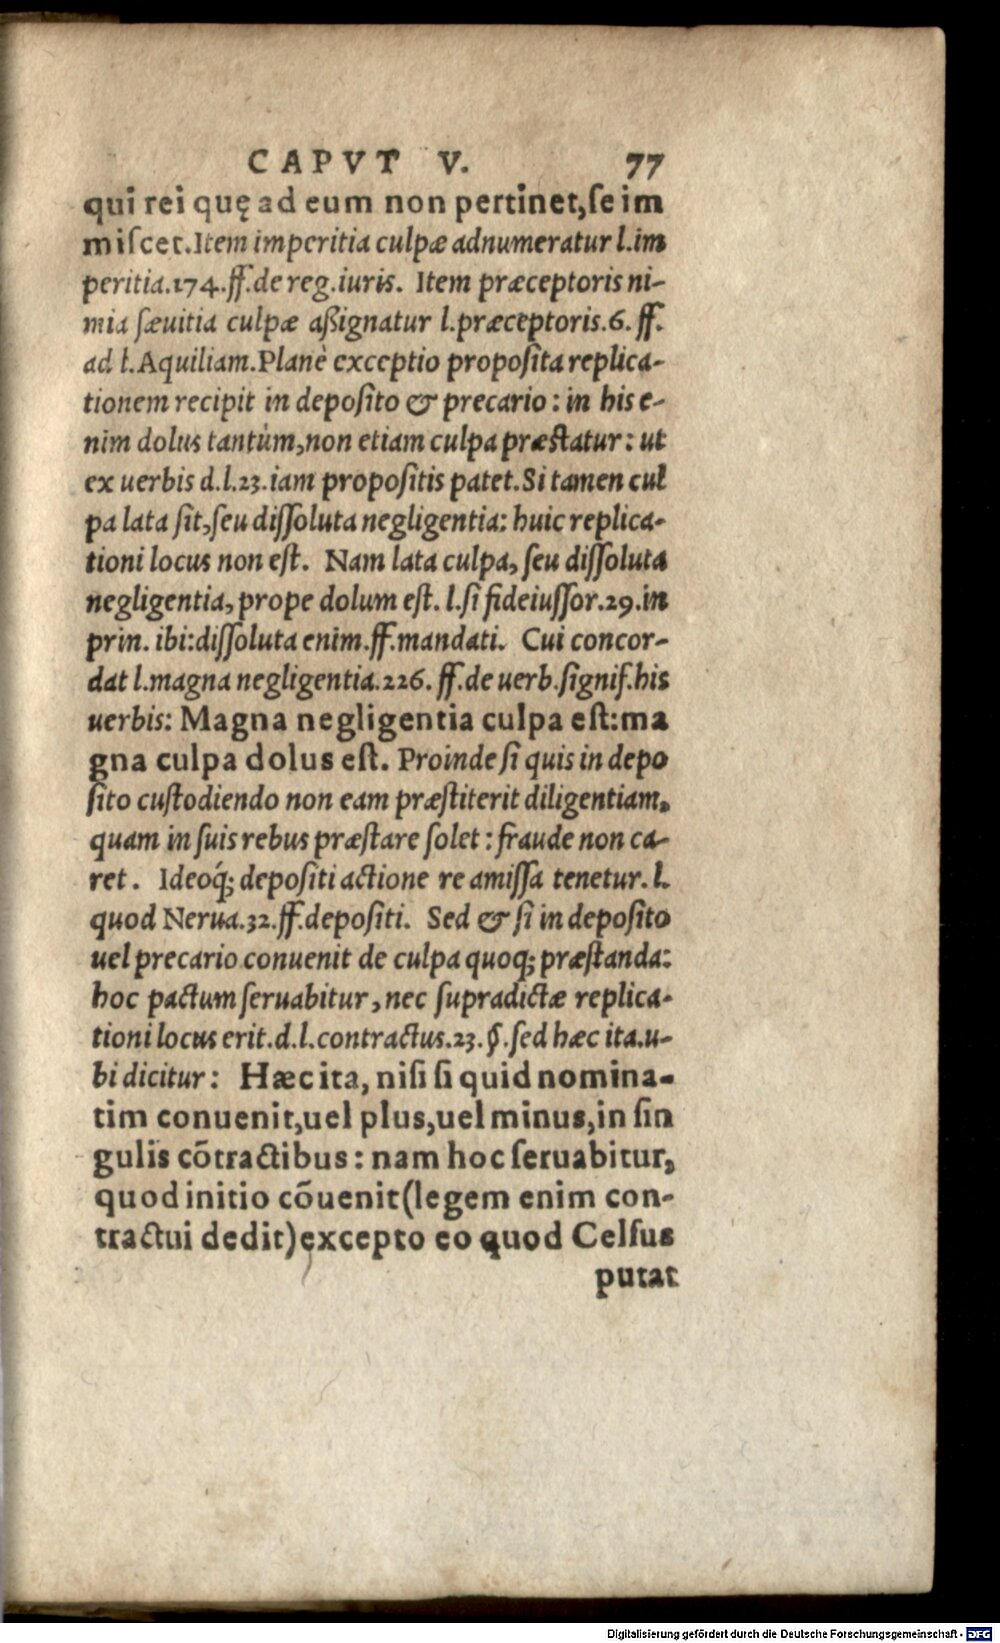 CAPVT V. 77
qui rei quę ad eum non pertinet,ſe im
miſcet.Item imperitia culpæ adnumeratur l.im
peritia.174.ff.de reg.iuris. Item præceptoris ni-
mia ſæuitia culpæ aßignatur l.præceptoris.6.ff.
ad l.Aquiliam.Planè exceptio propoſita replica-
tionem recipit in depoſito & precario: in his e-
nim dolus tantùm,non etiam culpa præſtatur: ut
ex uerbis d.l.23.iam propoſitis patet.Si tamen cul
pa lata ſit,ſeu diſſoluta negligentia: huic replica-
tioni locus non eſt. Nam lata culpa, ſeu diſſoluta
negligentia, prope dolum eſt. l.ſi fideiuſſor.29.in
prin. ibi:diſſoluta enim.ff.mandati. Cui concor-
dat l.magna negligentia.226.ff.de uerb.ſignif.his
uerbis: Magna negligentia culpa eſt:ma
gna culpa dolus eſt. Proinde ſi quis in depo
ſito cuſtodiendo non eam præſtiterit diligentiam,
quam in ſuis rebus præſtare ſolet: fraude non ca-
ret. Ideoq́; depoſiti actione re amiſſa tenetur.l.
quod Nerua.32.ff.depoſiti. Sed & ſi in depoſito
uel precario conuenit de culpa quoq; præſtanda:
hoc pactum ſeruabitur, nec ſupradictæ replica-
tioni locus erit.d.l.contractus.23.§.ſed hæc ita.u-
bi dicitur: Hæc ita, niſi ſi quid nomina-
tim conuenit,uel plus,uel minus,in ſin
gulis cōtractibus: nam hoc ſeruabitur,
quod initio cōuenit(legem enim con-
tractui dedit)excepto eo quod Celſus
putat
Digitalisierung gefördert durch die Deutsche Forschungsgemeinschaft - DFG